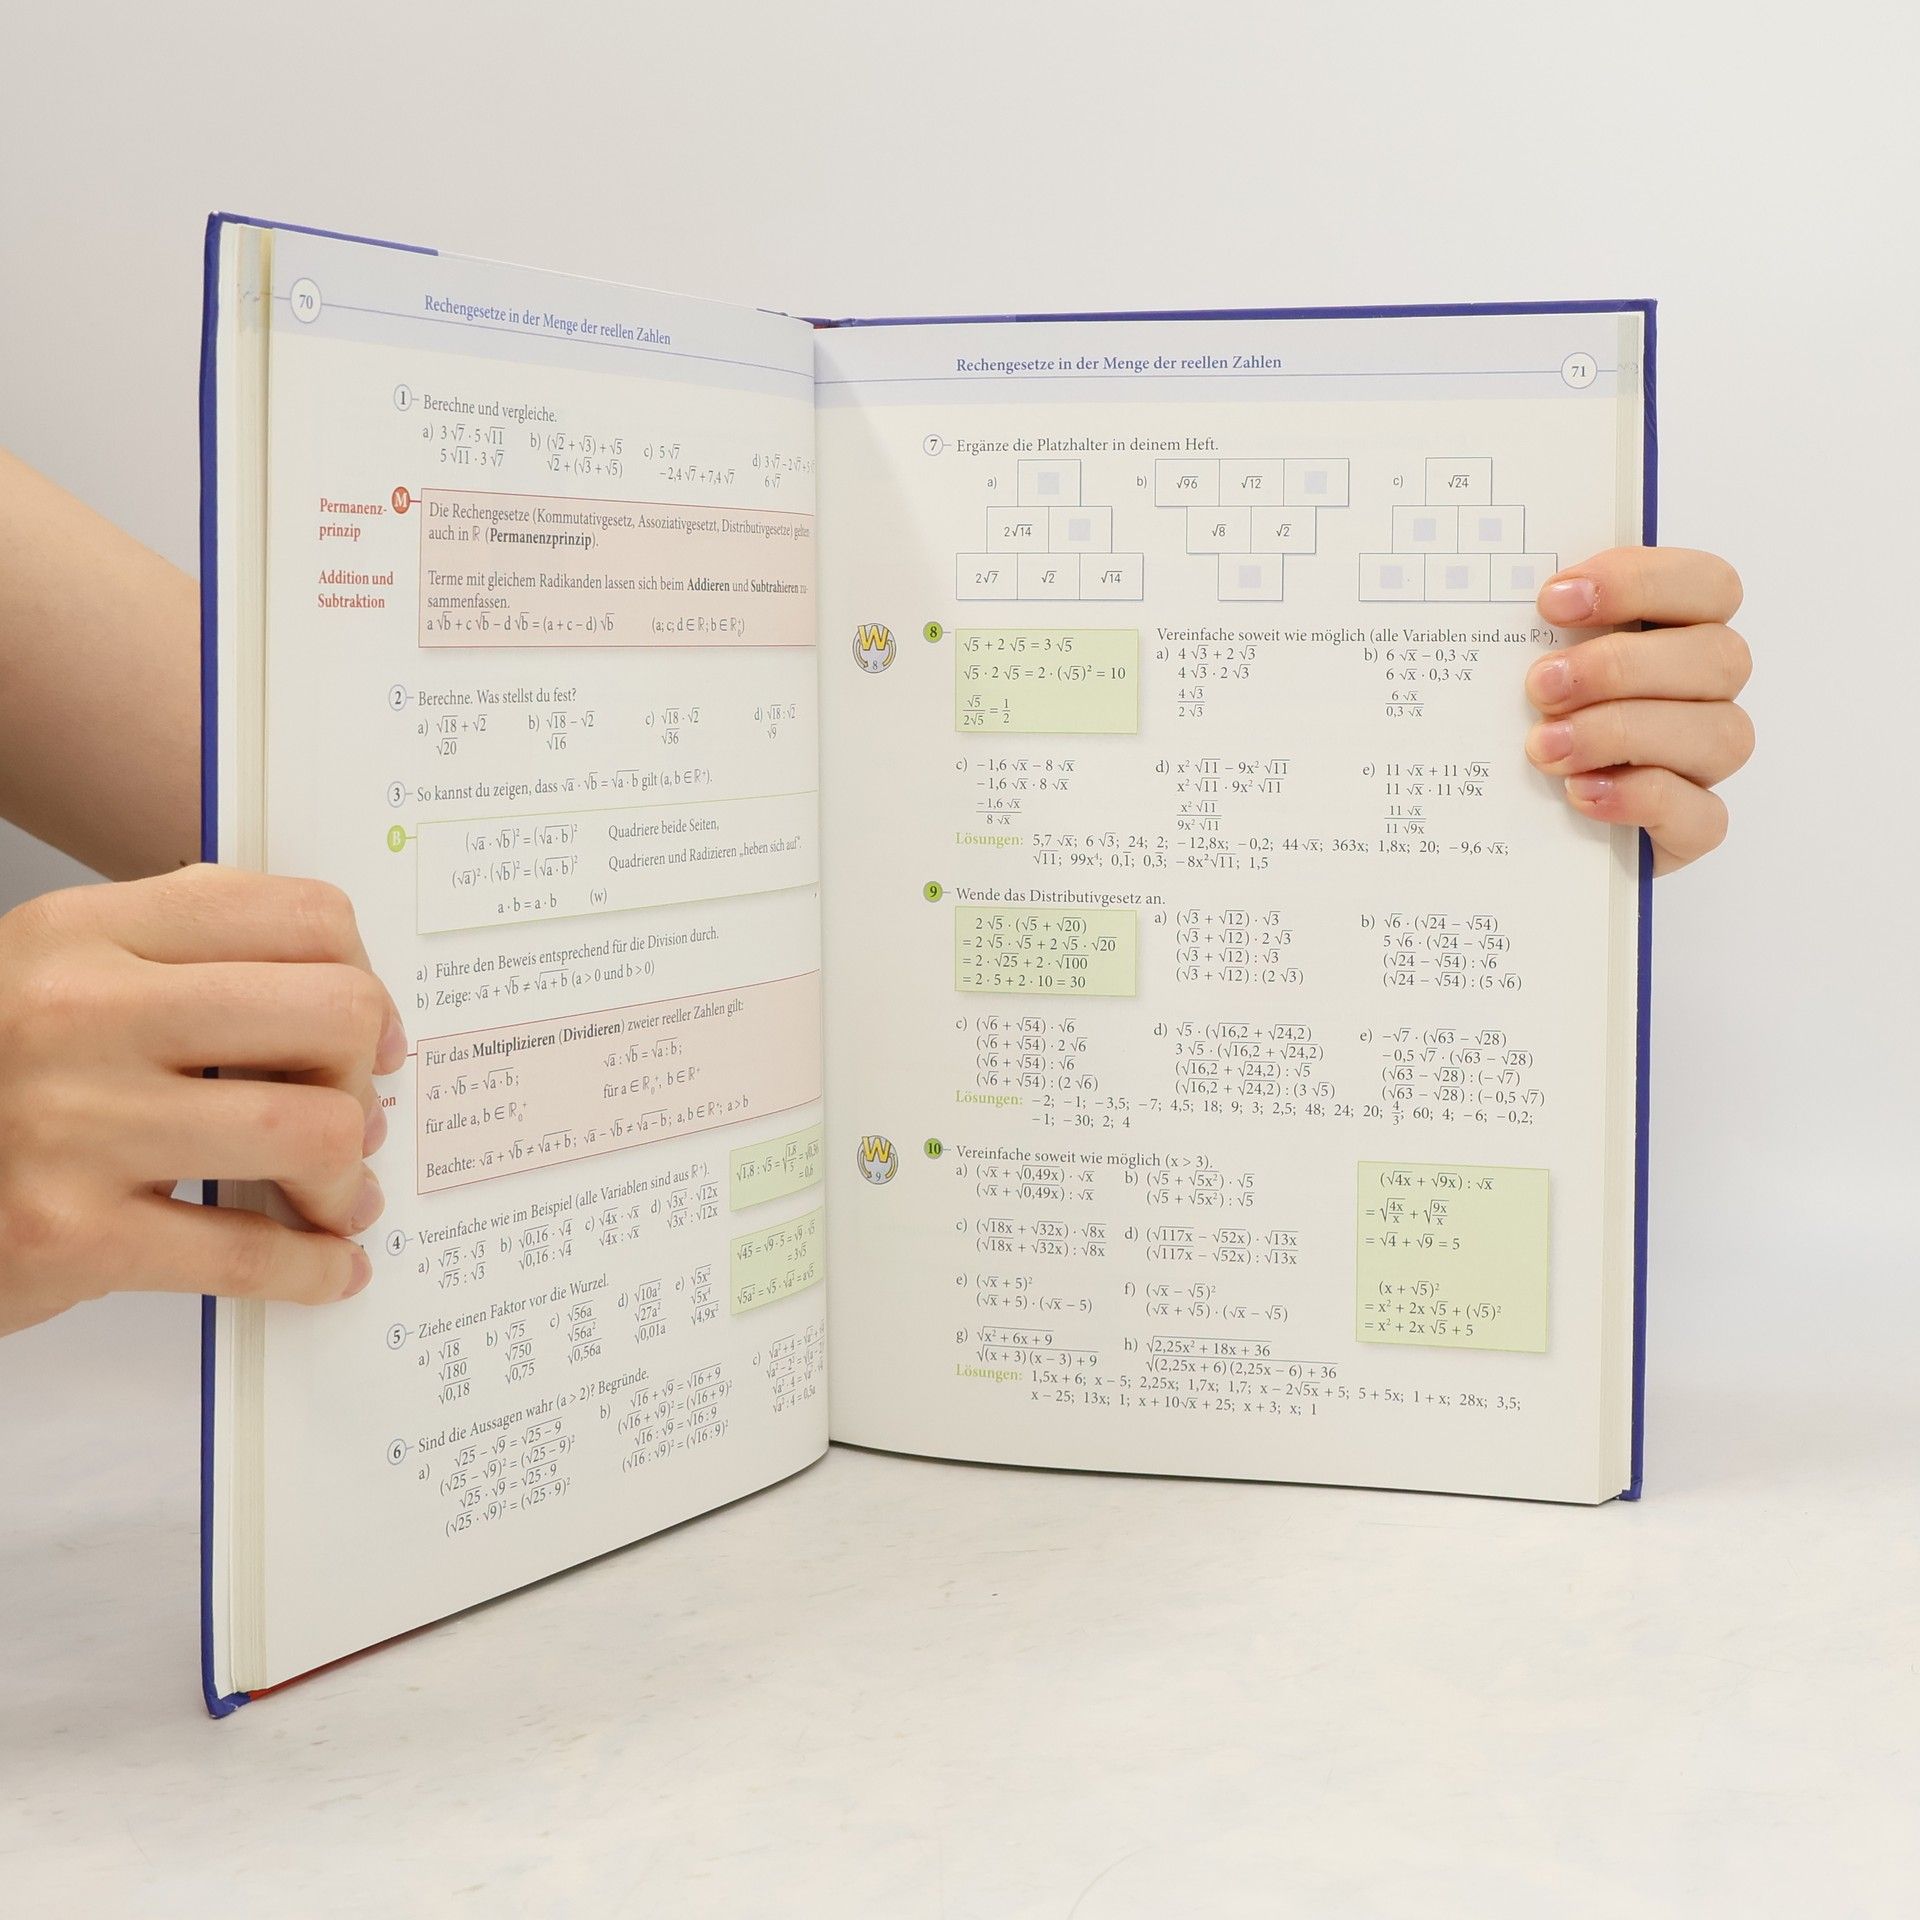 70
Rechengesetze in der Menge der reellen Zahlen
1 Berechne und vergleiche.
a) 3 √7 · 5 √11
5 √11 · 3 √7
b) (√2 + √3) + √5
√2 + (√3 + √5)
c) 5 √7
−2,4 √7 + 7,4 √7
d) 3 √7 − 2 √7 + 5
6 √7
Permanenz-
prinzip
M
Die Rechengesetze (Kommutativgesetz, Assoziativgesetzt, Distributivgesetze) gelten
auch in ℝ (Permanenzprinzip).
Addition und
Subtraktion
Terme mit gleichem Radikanden lassen sich beim Addieren und Subtrahieren zu-
sammenfassen.
a √b + c √b − d √b = (a + c − d) √b (a; c; d ∈ ℝ; b ∈ ℝ₀⁺)
2 Berechne. Was stellst du fest?
a) √18 + √2
√20
b) √18 − √2
√16
c) √18 · √2
√36
d) √18 : √2
√9
3 So kannst du zeigen, dass √a · √b = √(a · b) gilt (a, b ∈ ℝ⁺).
B
(√a · √b)² = (√(a · b))² Quadriere beide Seiten,
(√a)² · (√b)² = (√(a · b))² Quadrieren und Radizieren „heben sich auf“.
a · b = a · b (w)
a) Führe den Beweis entsprechend für die Division durch.
b) Zeige: √a + √b ≠ √(a + b) (a > 0 und b > 0)
Für das Multiplizieren (Dividieren) zweier reeller Zahlen gilt:
√a · √b = √(a · b); √a : √b = √(a : b);
für alle a, b ∈ ℝ₀⁺ für a ∈ ℝ₀⁺, b ∈ ℝ⁺
ion
Beachte: √a + √b ≠ √(a + b); √a − √b ≠ √(a − b); a, b ∈ ℝ⁺; a > b
4 Vereinfache wie im Beispiel (alle Variablen sind aus ℝ⁺).
a) √75 · √3
√75 : √3
b) √0,16 · √4
√0,16 : √4
c) √4x · √x
√4x : √x
d) √3x³ · √12x
√3x³ : √12x
√1,8 : √5 = √(1,8/5) = √0,36
= 0,6
5 Ziehe einen Faktor vor die Wurzel.
a) √18
√180
√0,18
b) √75
√750
√0,75
c) √56a
√56a²
√0,56a
d) √10a²
√27a²
√0,01a
e) √5x²
√5x⁴
√4,9x²
√45 = √(9 · 5) = √9 · √5
= 3√5
√5a² = √5 · √a² = a√5
6 Sind die Aussagen wahr (a > 2)? Begründe.
a) √25 − √9 = √(25 − 9)
(√25 − √9)² = (√(25 − 9))²
√25 · √9 = √(25 · 9)
(√25 · √9)² = (√(25 · 9))²
b) √16 + √9 = √(16 + 9)
(√16 + √9)² = (√(16 + 9))²
√16 : √9 = √(16 : 9)
(√16 : √9)² = (√(16 : 9))²
c)
Rechengesetze in der Menge der reellen Zahlen
71
7 Ergänze die Platzhalter in deinem Heft.
a)
2√14
2√7 √2 √14
b) √96 √12
√8 √2
c) √24
W
8
8 Vereinfache soweit wie möglich (alle Variablen sind aus ℝ⁺).
√5 + 2 √5 = 3 √5
√5 · 2 √5 = 2 · (√5)² = 10
√5/(2√5) = 1/2
a) 4 √3 + 2 √3
4 √3 · 2 √3
(4 √3)/(2 √3)
b) 6 √x − 0,3 √x
6 √x · 0,3 √x
(6 √x)/(0,3 √x)
c) −1,6 √x − 8 √x
−1,6 √x · 8 √x
(−1,6 √x)/(8 √x)
d) x² √11 − 9x² √11
x² √11 · 9x² √11
(x² √11)/(9x² √11)
e) 11 √x + 11 √9x
11 √x · 11 √9x
(11 √x)/(11 √9x)
Lösungen: 5,7 √x; 6 √3; 24; 2; −12,8x; −0,2; 44 √x; 363x; 1,8x; 20; −9,6 √x;
√11; 99x⁴; 0,1̅; 0,3̅; −8x²√11; 1,5
9 Wende das Distributivgesetz an.
2 √5 · (√5 + √20)
= 2 √5 · √5 + 2 √5 · √20
= 2 · √25 + 2 · √100
= 2 · 5 + 2 · 10 = 30
a) (√3 + √12) · √3
(√3 + √12) · 2 √3
(√3 + √12) : √3
(√3 + √12) : (2 √3)
b) √6 · (√24 − √54)
5 √6 · (√24 − √54)
(√24 − √54) : √6
(√24 − √54) : (5 √6)
c) (√6 + √54) · √6
(√6 + √54) · 2 √6
(√6 + √54) : √6
(√6 + √54) : (2 √6)
d) √5 · (√16,2 + √24,2)
3 √5 · (√16,2 + √24,2)
(√16,2 + √24,2) : √5
(√16,2 + √24,2) : (3 √5)
e) −√7 · (√63 − √28)
−0,5 √7 · (√63 − √28)
(√63 − √28) : (−√7)
(√63 − √28) : (−0,5 √7)
Lösungen: −2; −1; −3,5; −7; 4,5; 18; 9; 3; 2,5; 48; 24; 20; 4/3; 60; 4; −6; −0,2;
−1; −30; 2; 4
W
9
10 Vereinfache soweit wie möglich (x > 3).
a) (√x + √0,49x) · √x
(√x + √0,49x) : √x
b) (√5 + √5x²) · √5
(√5 + √5x²) : √5
c) (√18x + √32x) · √8x
(√18x + √32x) : √8x
d) (√117x − √52x) · √13x
(√117x − √52x) : √13x
e) (√x + 5)²
(√x + 5) · (√x − 5)
f) (√x − √5)²
(√x + √5) · (√x − √5)
g) √(x² + 6x + 9)
√((x + 3)(x − 3) + 9)
h) √(2,25x² + 18x + 36)
√((2,25x + 6)(2,25x − 6) + 36)
(√4x + √9x) : √x
= √(4x/x) + √(9x/x)
= √4 + √9 = 5
(x + √5)²
= x² + 2x √5 + (√5)²
= x² + 2x √5 + 5
Lösungen: 1,5x + 6; x − 5; 2,25x; 1,7x; 1,7; x − 2√5x + 5; 5 + 5x; 1 + x; 28x; 3,5;
x − 25; 13x; 1; x + 10√x + 25; x + 3; x; 1